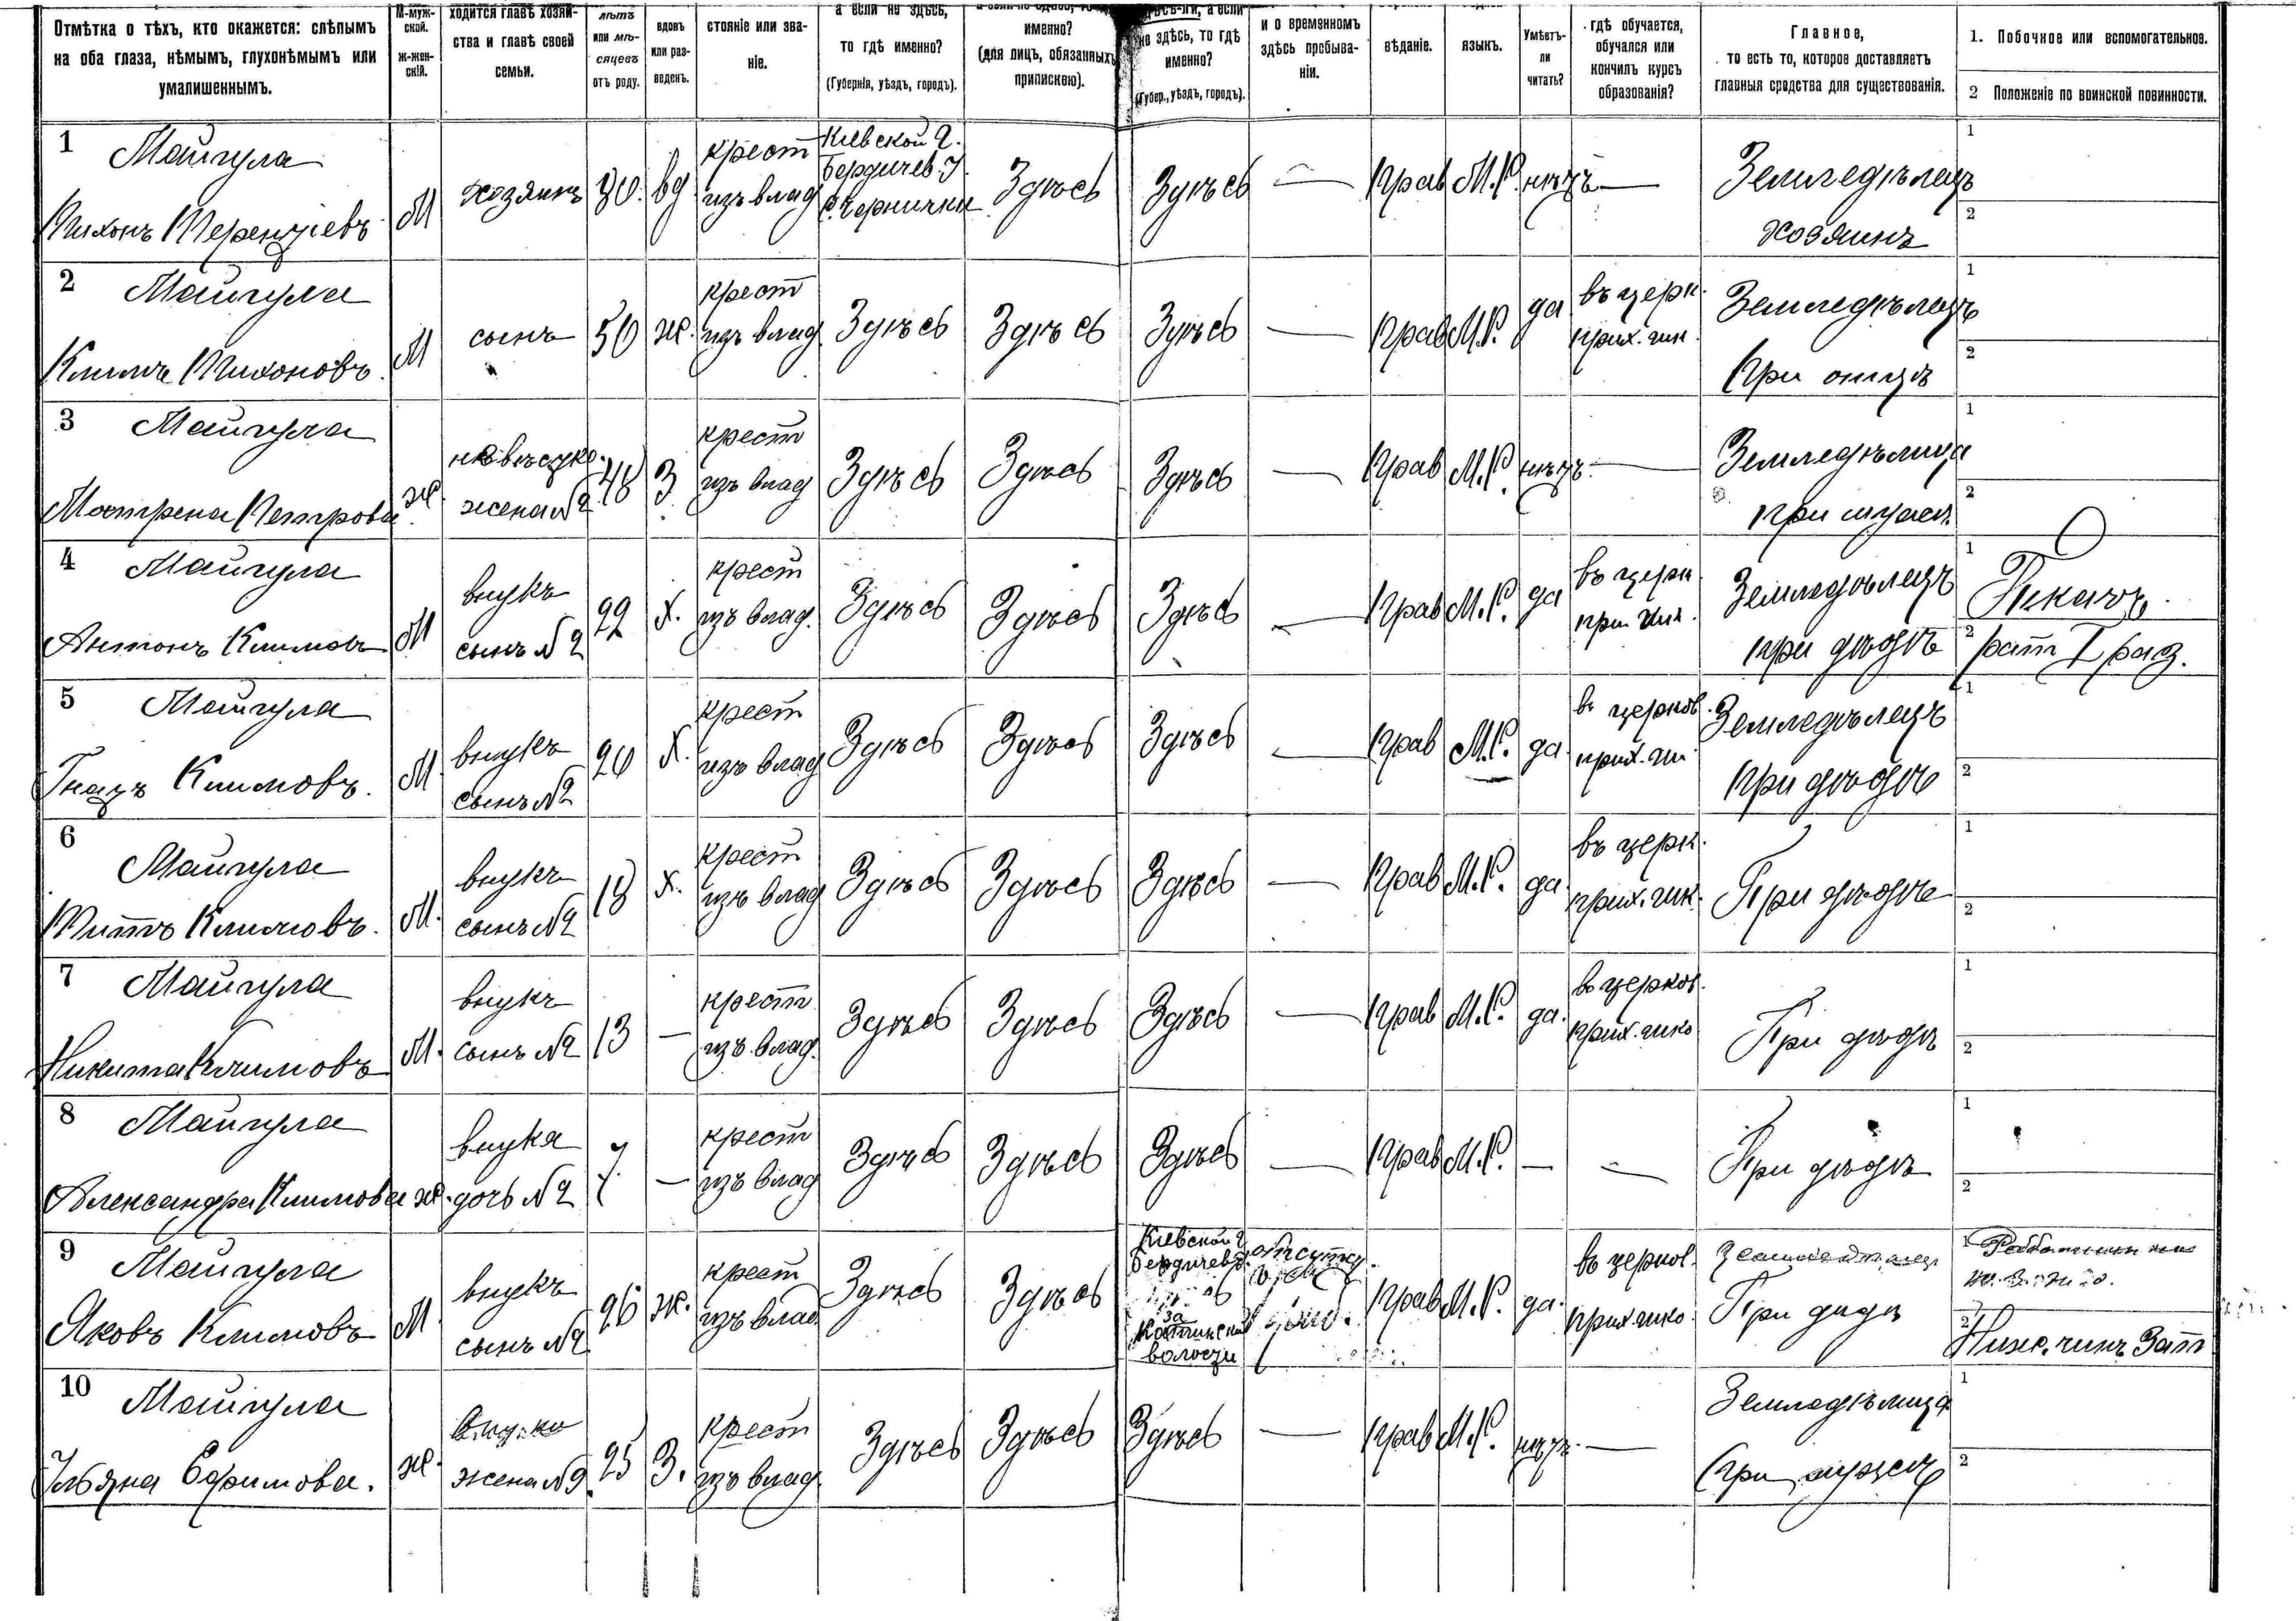 Отмѣтка о тѣхъ, кто окажется: слѣпымъ
на оба глаза, нѣмымъ, глухонѣмымъ или
умалишеннымъ.
М-муж-
ской.
ж-жен-
скій.
ходится главѣ хозяй-
ства и главѣ своей
семьи.
лѣтъ
или мѣ-
сяцевъ
отъ роду.
вдовъ
или раз-
веденъ.
стояніе или зва-
ніе.
а если не здѣсь,
то гдѣ именно?
(Губернія, уѣздъ, городъ).
именно?
(для лицъ, обязанныхъ
припискою).
здѣсь-ли, а если
не здѣсь, то гдѣ
именно?
(Губер., уѣздъ, городъ).
и о временномъ
здѣсь пребыва-
ніи.
вѣданіе.
языкъ.
Умѣетъ-
ли
читать?
гдѣ обучается,
обучался или
кончилъ курсъ
образованія?
Главное,
то есть то, которое доставляетъ
главныя средства для существованія.
1. Побочное или вспомогательное.
2 Положеніе по воинской повинности.
1 Майгула
Тихонъ Терентіевъ
М
хозяинъ
80.
вд
крест
изъ влад
Кіевской г.
Бердичев. у.
с. Чернички
Здѣсь
Здѣсь
—
Прав
М.Р.
нѣтъ
—
Земледѣлецъ
хозяинъ
1
2
2 Майгула
Климъ Тихоновъ.
М
сынъ
50
ж.
крест
изъ влад.
Здѣсь
Здѣсь
Здѣсь
—
Прав
М.Р.
да
въ церк.
прих. шк.
Земледѣлецъ
При отцѣ
1
2
3 Майгула
Мотрена Петрова
ж.
невѣстка
жена №2
48
З
крест
изъ влад
Здѣсь
Здѣсь
Здѣсь
—
Прав
М.Р.
нѣтъ
—
Земледѣлица
при мужѣ.
1
2
4 Майгула
Антонъ Климовъ
М
внукъ
сынъ №2
22
х.
крест
изъ влад.
Здѣсь
Здѣсь
Здѣсь
—
Прав
М.Р.
да
въ церк.
при. шк.
Земледѣлецъ
при дѣдѣ
1 Ткачъ.
2 рат I раз.
5 Майгула
Гнатъ Климовъ.
М.
внукъ
сынъ №2
20
х.
крест
изъ влад
Здѣсь
Здѣсь
Здѣсь
—
Прав
М.Р.
да.
въ церков.
прих. шк
Земледѣлецъ
при дѣдѣ
1
2
6 Майгула
Титъ Климовъ.
М.
внукъ
сынъ №2
18
х.
крест
изъ влад
Здѣсь
Здѣсь
Здѣсь
—
Прав
М.Р.
да.
въ церк.
прих. шк.
При дѣдѣ
1
2
7 Майгула
Никита Климовъ
М.
внукъ
сынъ №2
13
—
крест
изъ влад.
Здѣсь
Здѣсь
Здѣсь
—
Прав
М.Р.
да.
въ церков.
прих. шко
При дѣдѣ
1
2
8 Майгула
Александра Климова
ж.
внука
дочь №2
7
—
крест
изъ влад
Здѣсь
Здѣсь
Здѣсь
—
Прав
М.Р.
—
—
При дѣдѣ
1
2
9 Майгула
Яковъ Климовъ
М
внукъ
сынъ №2
26
ж.
крест
изъ влад
Здѣсь
Здѣсь
Кіевской г.
Бердичев у.
волости
Прав
М.Р.
да.
въ церков.
прих. шко.
При дѣдѣ
1
2 Ниж. чинъ Зап
10 Майгула
Ульяна Ефимова.
ж.
жена №9.
25
З.
крест
изъ влад.
Здѣсь
Здѣсь
Здѣсь
—
Прав
М.Р.
нѣтъ
—
Земледѣлица
При мужѣ
1
2